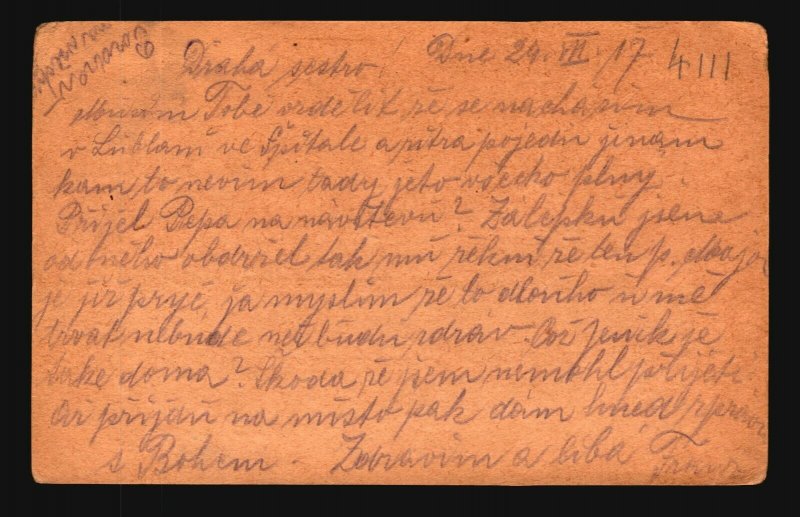 Drahá sestro! Dne 24. VII. 17. 4III
Musím Tobě vrdělit že se nacházím
v Lublani ve Špitále a zitra pojedu jinam
kam to nevím tady jeto všecko plny.
Přijel Pepa na návštevu? Zálepku jsem
od něho obdržel tak mu řekni že ten p.
je již pryč, ja myslim že to dlouho u mě
trvat nebude než budu zdráv. Což Jenik je
take doma? Škoda že jsem nemohl přijeti.
Až přijdu na místo pak dám hned zprávu
s Bohem - Zdravím a líbá Franz